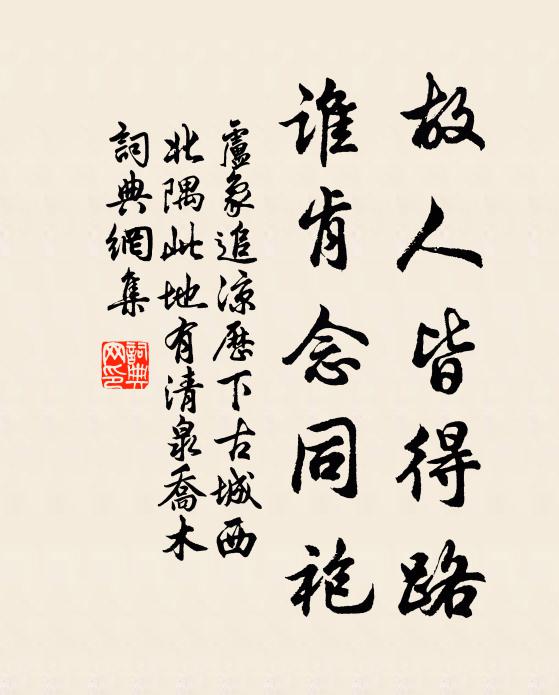 故人皆得路
谁肯念同袍
盧象追涼歷下古城西
北隅此地有清泉喬木
詞典網集
詞典
网印